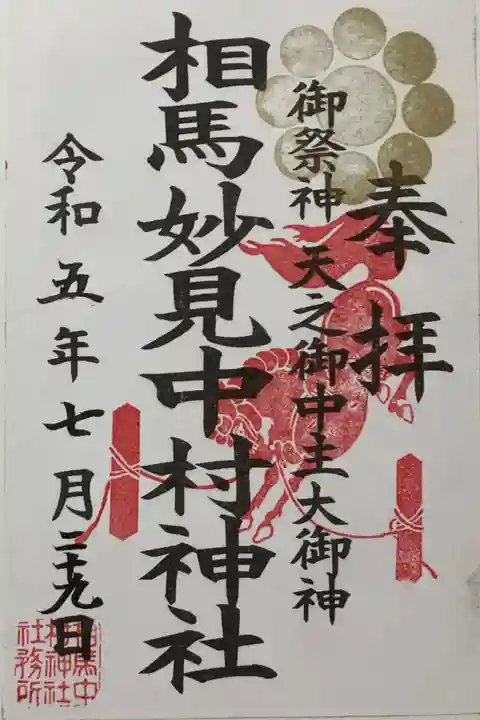 奉拝
御祭神 天之御中主大御神
相馬妙見中村神社
令和五年七月二十九日
相馬中
村神社
社務所